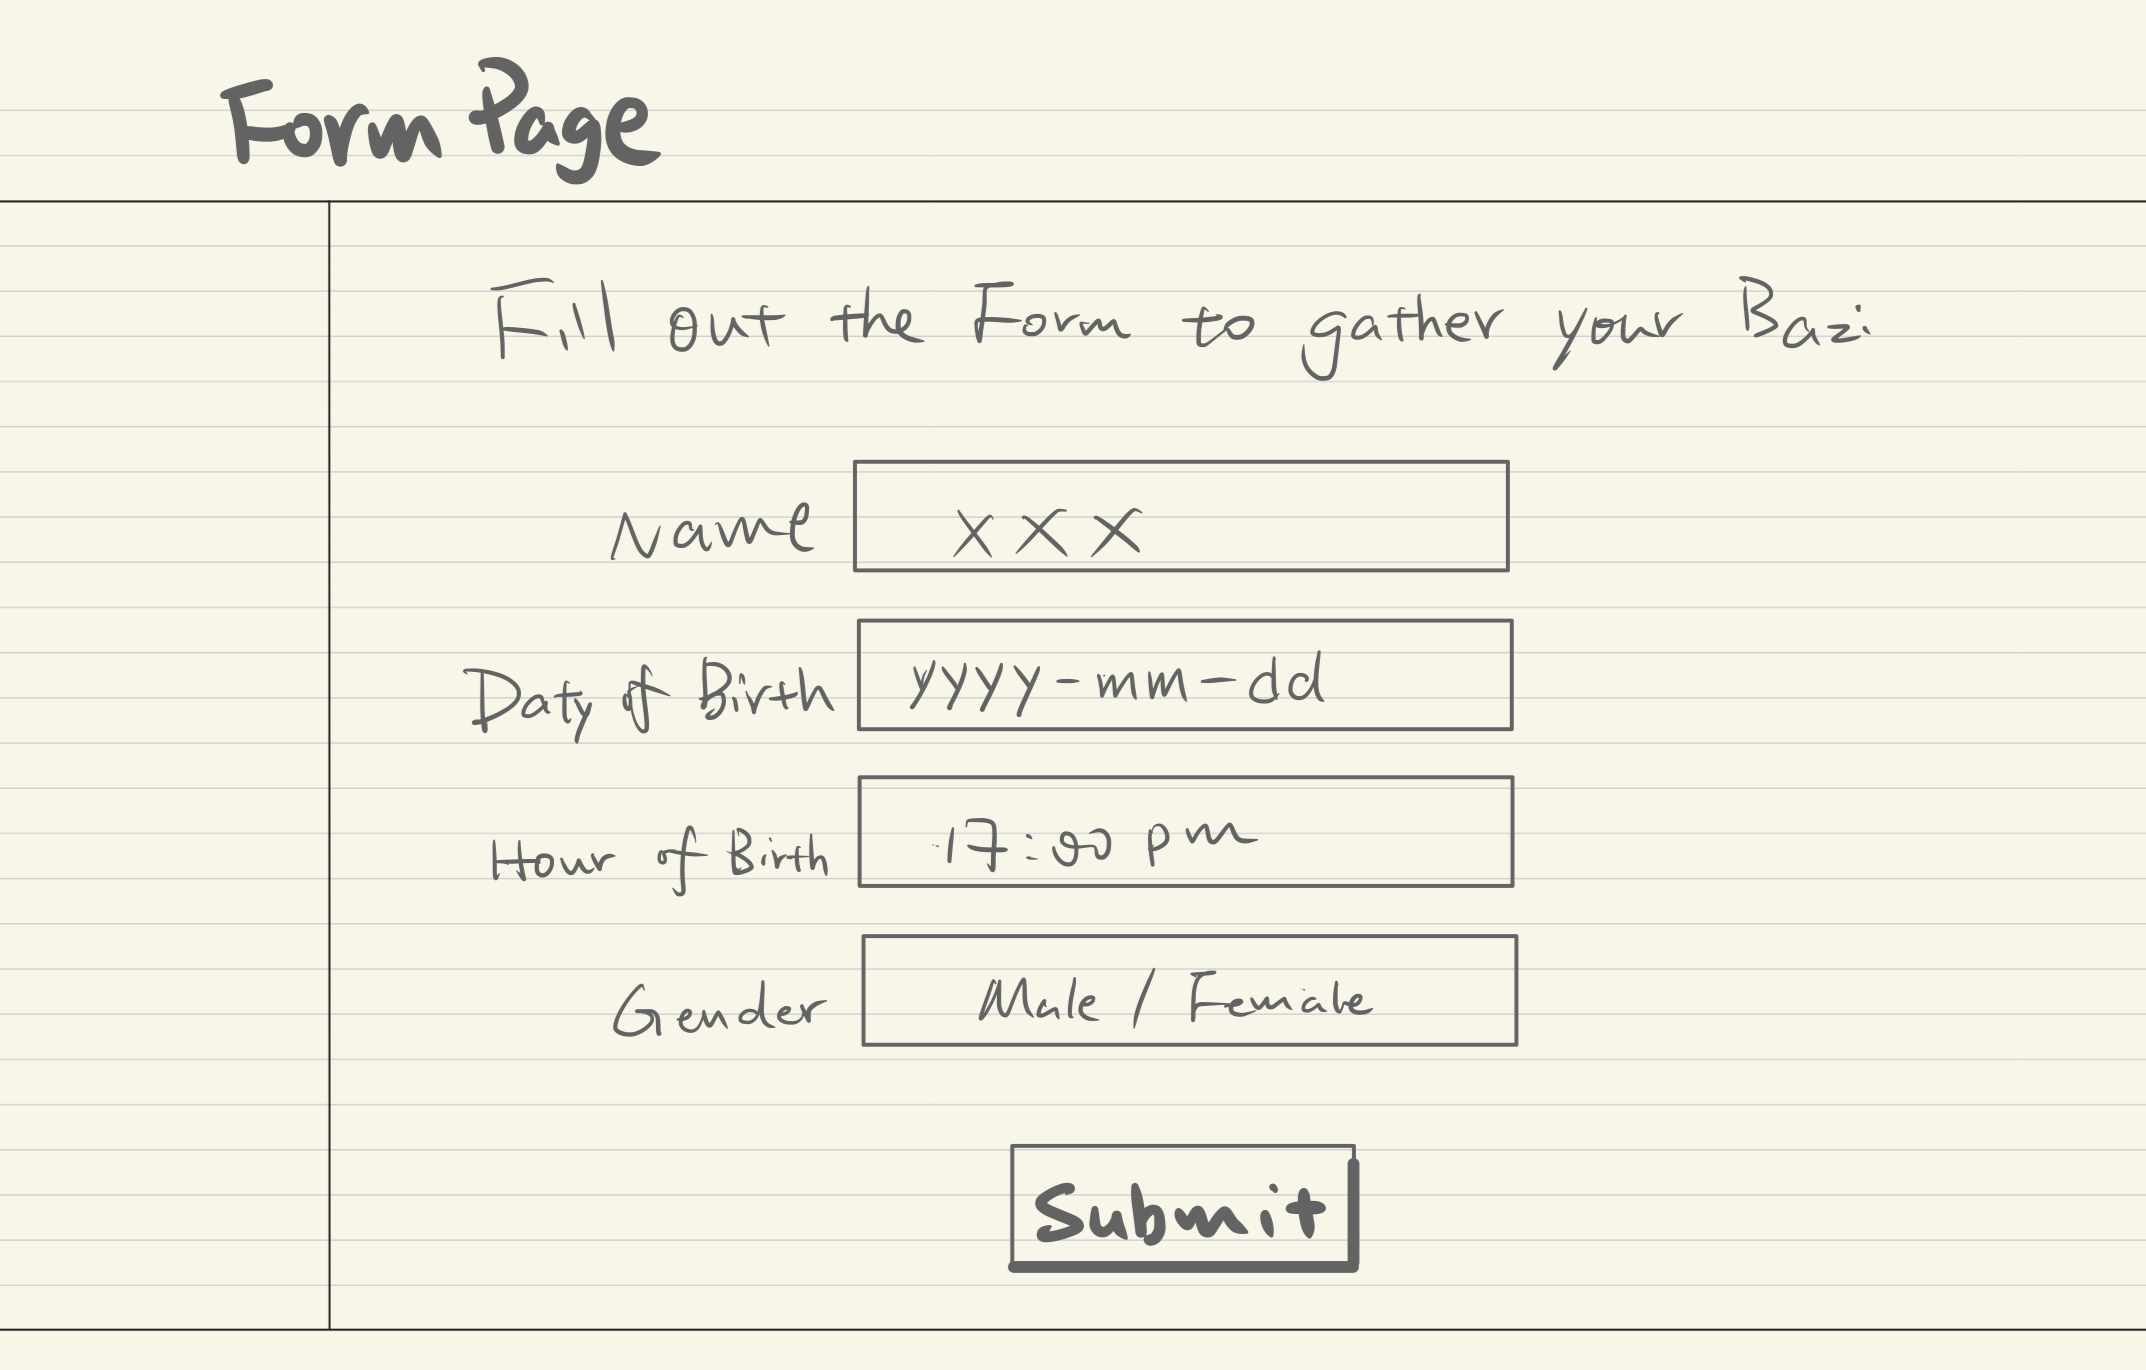 Form Page
Fill out the Form to gather your Bazi
Name XXX
Daty of Birth yyyy-mm-dd
Hour of Birth 17:00 pm
Gender Male / Female
Submit